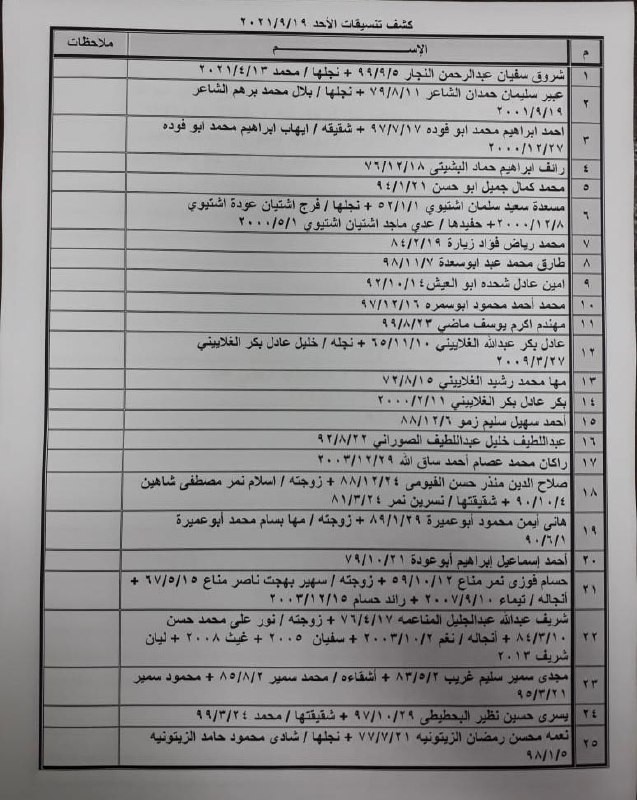 كشف تنسيقات الأحد ٢٠٢١/٩/١٩
م الإســـم ملاحظات
١ شروق سفيان عبدالرحمن النجار ٩٩/٩/٥ + نجلها / محمد ٢٠٢١/٤/١٣
٢ عبير سليمان حمدان الشاعر ٧٩/٨/١١ + نجلها / بلال محمد برهم الشاعر
٢٠٠١/٩/١٩
٣ احمد ابراهيم محمد ابو فوده ٩٧/٧/١٧ + شقيقه / ايهاب ابراهيم محمد ابو فوده
٢٠٠٠/١٢/٢٧
٤ رائف ابراهيم حماد البشيتى ٧٦/١٢/١٨
٥ محمد كمال جميل ابو حسن ٩٤/١/٢١
٦ مسعدة سعيد سلمان اشتيوي ٥٢/١/١ + نجلها / فرج اشتيان عودة اشتيوي
٢٠٠٠/١٢/٨+ حفيدها / عدي ماجد اشتيان اشتيوي ٢٠٠٠/٥/١
٧ محمد رياض فؤاد زيارة ٨٤/٢/١٩
٨ طارق محمد عبد ابوسعدة ٩٨/١١/٧
٩ امين عادل شحده ابو العيش٩٢/١٠/١٤
١٠ محمد أحمد محمود ابوسمره ٩٧/١٢/١٦
١١ مهندم اكرم يوسف ماضي ٩٩/٨/٢٣
١٢ عادل بكر عبدالله الغلاييني ٦٥/١١/١٠ + نجله / خليل عادل بكر الغلاييني
٢٠٠٩/٣/٢٧
١٣ مها محمد رشيد الغلاييني ٧٢/٨/١٥
١٤ بكر عادل بكر الغلاييني ٢٠٠٠/٢/١١
١٥ أحمد سهيل سليم زمو ٨٨/١٢/٦
١٦ عبداللطيف خليل عبداللطيف الصوراني ٩٢/٨/٢٢
١٧ راكان محمد عصام أحمد ساق الله ٢٠٠٣/١٢/٢٩
١٨ صلاح الدين منذر حسن الفيومى ٨٨/١٢/٢٤ + زوجته / اسلام نمر مصطفى شاهين
٩٠/١٠/٤ + شقيقتها / نسرين نمر ٨١/٣/٢٤
١٩ هانى أيمن محمود أبوعميرة ٨٩/١/٢٩ + زوجته / مها بسام محمد أبوعميرة
٩٠/٦/١
٢٠ أحمد إسماعيل إبراهيم أبوعودة ٧٩/١٠/٢١
٢١ حسام فوزى نمر مناع ٥٩/١٠/١٢ + زوجته / سهير بهجت ناصر مناع ٦٧/٥/١٥ +
أنجاله / تيماء ٢٠٠٧/٩/١٠ + رائد حسام ٢٠٠٣/١٢/١٥
٢٢ شريف عبدالله عبدالجليل المناعمه ٧٦/٤/١٧ + زوجته / نور على محمد حسن
٨٤/٣/١٠ + أنجاله / نغم ٢٠٠٣/١٠/٢ + سفيان ٢٠٠٥ + غيث ٢٠٠٨ + ليان
شريف ٢٠١٣
٢٣ مجدى سمير سليم غريب ٨٣/٥/٢ + أشقاءه / محمد سمير ٨٥/٨/٢ + محمود سمير
٩٥/٣/٢١
٢٤ يسرى حسين نظير البحطيطى ٩٧/١٠/٢٩ + شقيقتها / محمد ٩٩/٣/٢٤
٢٥ نعمه محسن رمضان الزيتونيه ٧٧/٧/٢١ + نجلها / شادى محمود حامد الزيتونيه
٩٨/١/٥